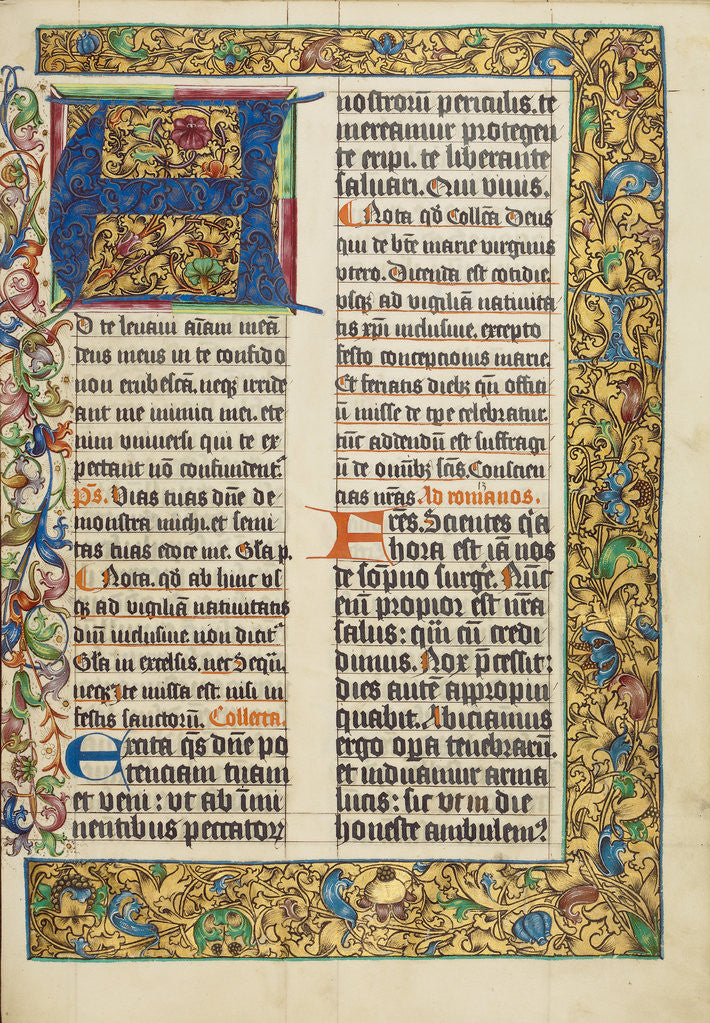 A
D te levavi a͞iam mea͞
deus meus in te confido
non erubesca͞. neqz irride
ant me inimici mei. ete
nim universi qui te ex
pectant no͞ confundent᷑.
p͞s. Vias tuas dn͞e de
monstra michi. et semi
tas tuas edoce me. Gl͞a p.
Nota. qd͞ ab hinc vs
qz ad vigilia͞ nativitatis
dn͞i inclusive non dicit᷑
Gl͞a in excelsis. nec Sequ͞.
neqz Ite missa est. nisi in
festis sanctoru͞. Collecta.
Excita q͞s dn͞e po
tenciam tuam
et veni: vt ab i͞mi
nentibus peccatorꝝ
nostroru͞ periculis. te
mereamur protegen
te eripi. te liberante
salvari. Qui vivis.
Nota qd͞ Collc͞a Deus
qui de bt͞e marie virginis
vtero. Dicenda est cotidie.
vsqz ad vigilia͞ nativita
tis xp͞i inclusive. excepto
festo conceptionis marie.
Et feriatis diebz qn͞ offici
u͞ misse de tp͞e celebratur.
tu͞c addendu͞ est suffragi
u͞ de omn͞ibz sc͞is. Conscien
cias vr͞as. Ad romanos. 13
Fr͞es. Scientes q͞a
hora est ia͞ nos
de so͞pno surg͞e. Nu͞c
eni͞ propior est nr͞a
salus: q͞ cu͞ credi
dimus. Nox p͞cessit:
dies aute͞ appropin
quabit. Abiciamus
ergo op͞a tenebraru͞.
et induamur arma
lucis: sic vt in die
honeste ambulem᷒.